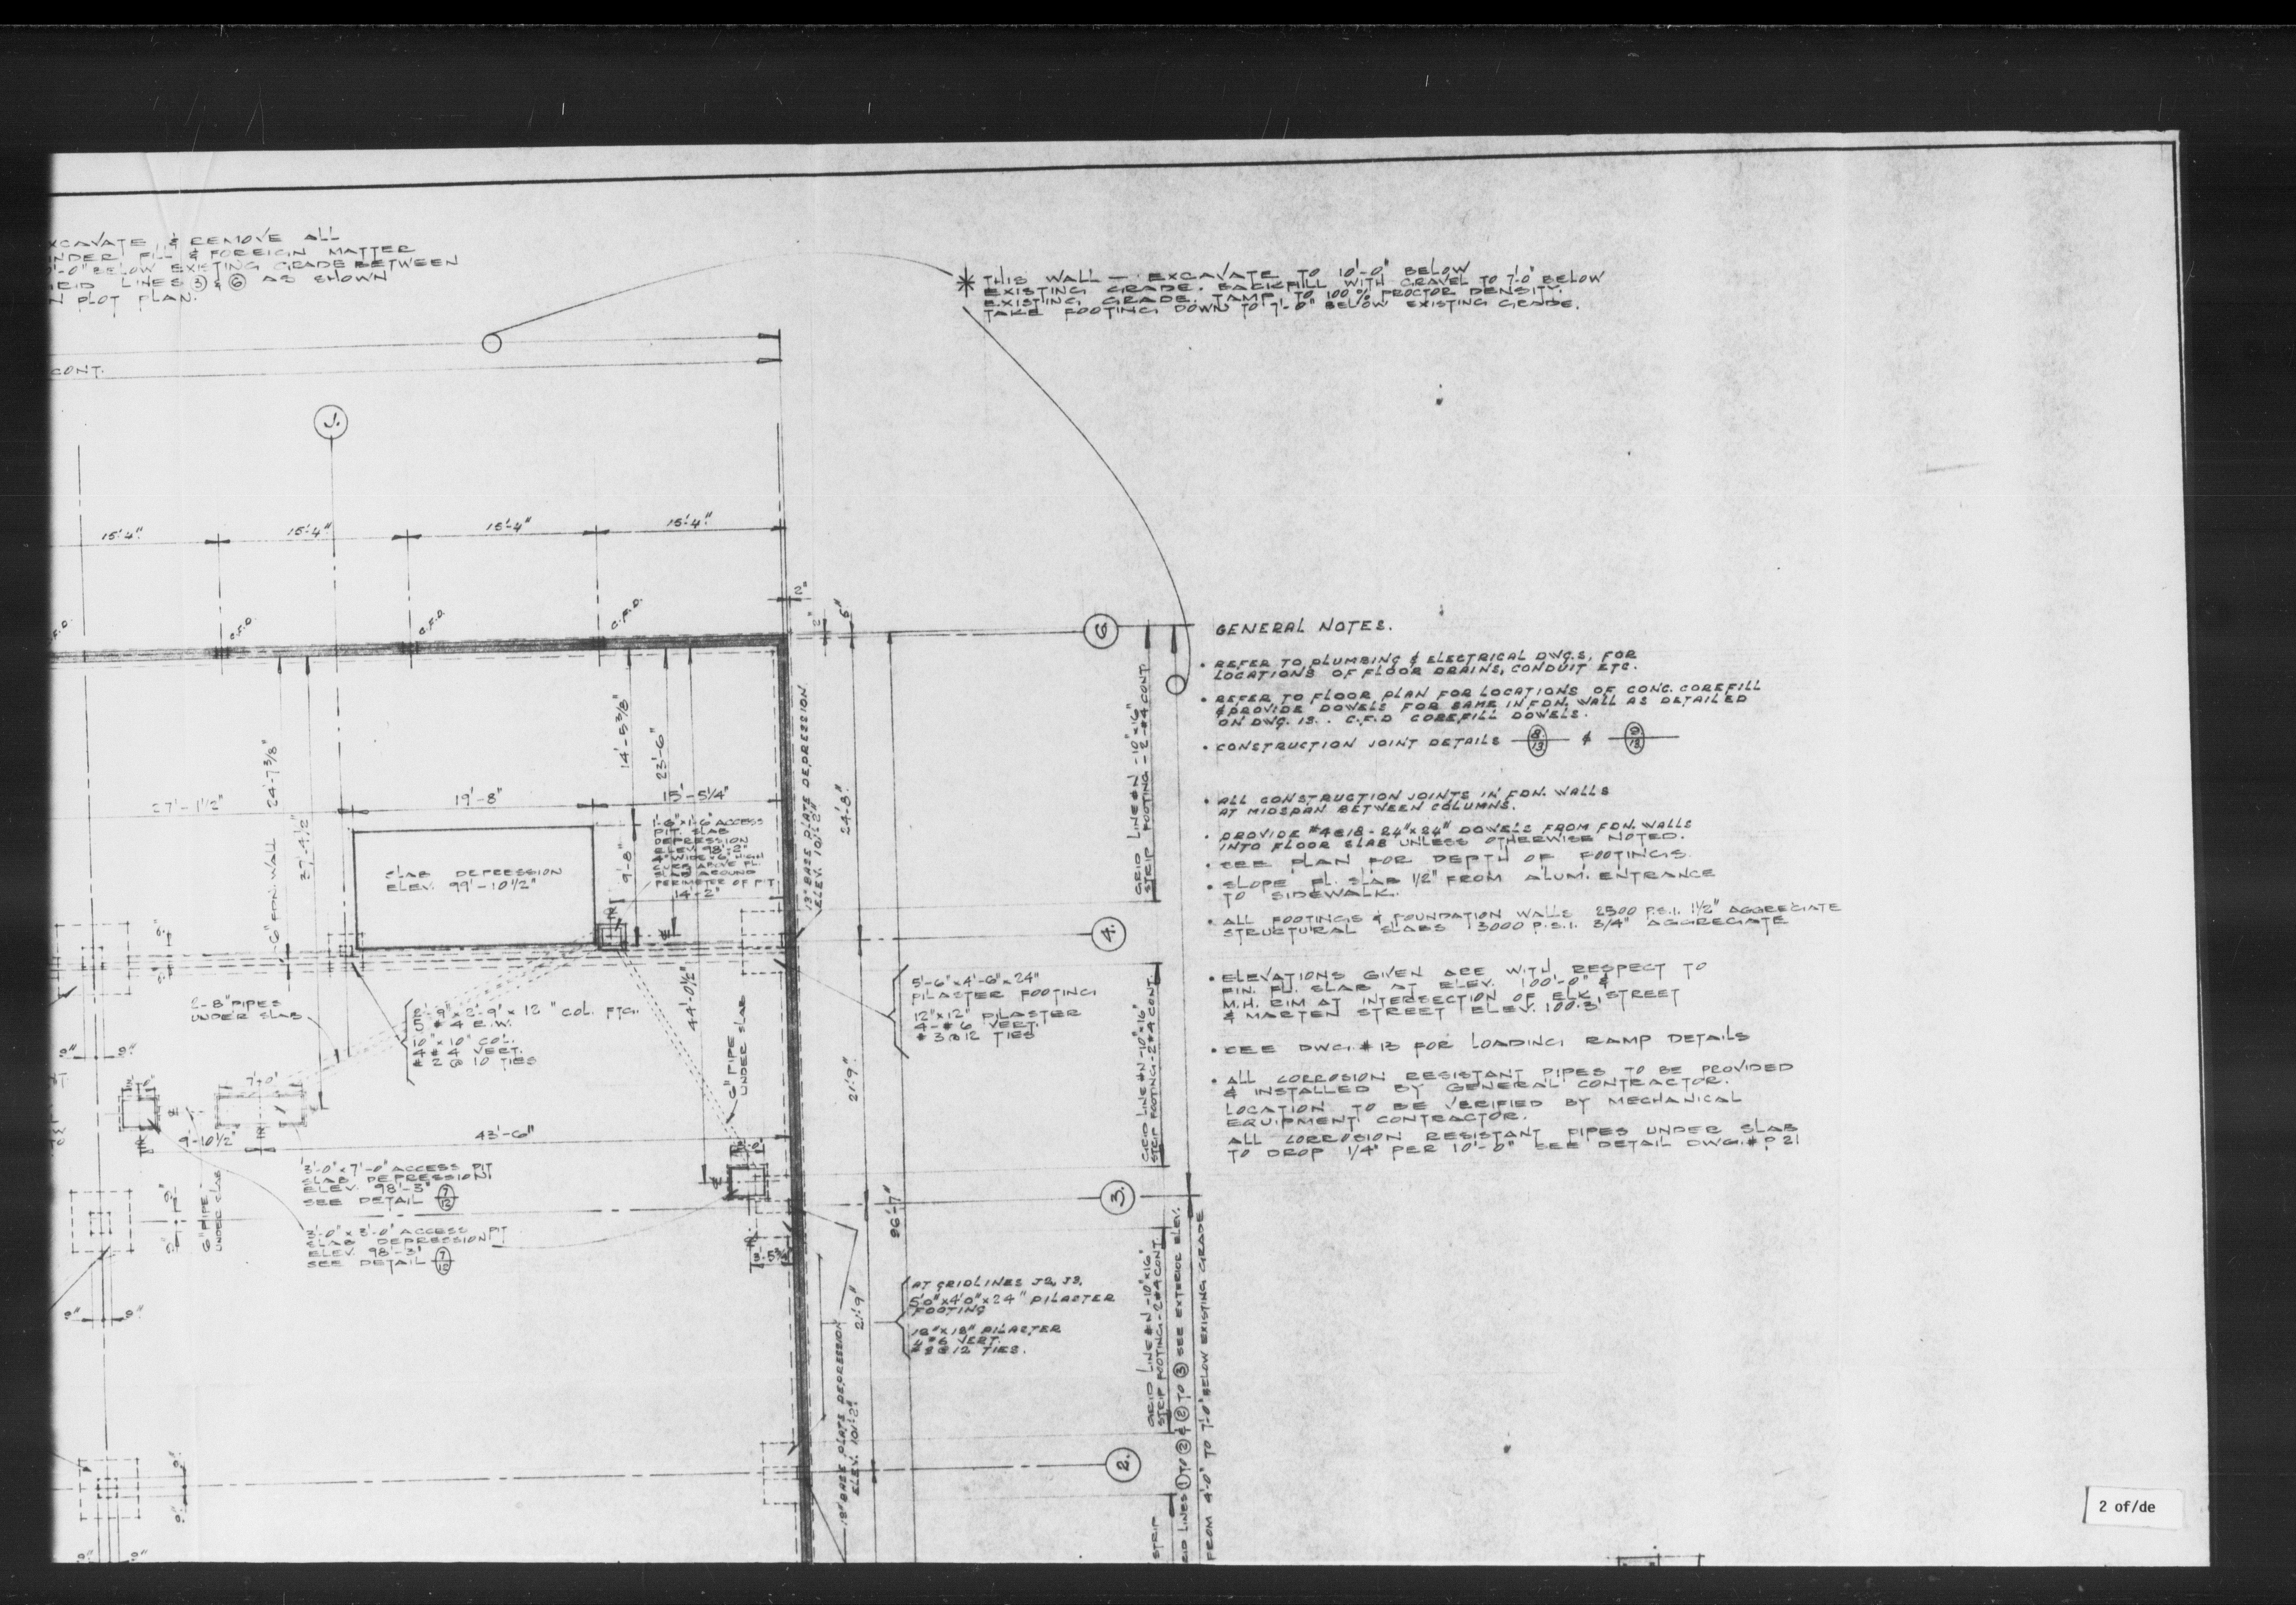 XCAVATE & REMOVE ALL
NDER FILL & FOREIGN MATTER
'-0" BELOW EXISTING GRADE BETWEEN
RID LINES 3 & 6 AS SHOWN
N PLOT PLAN.
CONT.
THIS WALL — EXCAVATE TO 10'-0" BELOW
EXISTING GRADE. BACKFILL WITH GRAVEL TO 7'-0" BELOW
EXISTING GRADE. TAMP TO 100% PROCTOR DENSITY.
TAKE FOOTING DOWN TO 7'-0" BELOW EXISTING GRADE.
J.
15'-4" 15'-4" 15'-4" 15'-4"
F.D. C.F.D. C.F.D. C.F.D.
2"
2" 6"
6
GENERAL NOTES.
• REFER TO PLUMBING & ELECTRICAL DWG.S, FOR
LOCATIONS OF FLOOR DRAINS, CONDUIT ETC.
• REFER TO FLOOR PLAN FOR LOCATIONS OF CONC. COREFILL
& PROVIDE DOWELS FOR SAME IN FDN. WALL AS DETAILED
ON DWG. 13. . C.F.D COREFILL DOWELS.
• CONSTRUCTION JOINT DETAILS 8/13 & 9/13
• ALL CONSTRUCTION JOINTS IN FDN. WALLS
AT MIDSPAN BETWEEN COLUMNS.
• PROVIDE #4@18 - 24"x24" DOWELS FROM FDN. WALLS
INTO FLOOR SLAB UNLESS OTHERWISE NOTED.
• SEE PLAN FOR DEPTH OF FOOTINGS
• SLOPE FL. SLAB 1/2" FROM ALUM. ENTRANCE
TO SIDEWALK.
• ALL FOOTINGS & FOUNDATION WALLS 2500 P.S.I. 1 1/2" AGGREGIATE
STRUCTURAL SLABS 3000 P.S.I. 3/4" AGGREGIATE
• ELEVATIONS GIVEN ARE WITH RESPECT TO
FIN. FL. SLAB AT ELEV. 100'-0" &
M.H. RIM AT INTERSECTION OF ELK STREET
& MARTEN STREET ELEV. 100.3'
• SEE DWG. # 13 FOR LOADING RAMP DETAILS
• ALL CORROSION RESISTANT PIPES TO BE PROVIDED
& INSTALLED BY GENERAL CONTRACTOR.
LOCATION TO BE VERIFIED BY MECHANICAL
EQUIPMENT CONTRACTOR.
ALL CORROSION RESISTANT PIPES UNDER SLAB
TO DROP 1/4" PER 10'-0" SEE DETAIL DWG. # P 21
24'-7 3/8"
14'-5 3/8"
23'-6"
27'-1 1/2" 19'-8" 15'-5 1/4"
37'-4 1/2"
6" FDN. WALL
1'-6"x1'-6" ACCESS
PIT. SLAB
DEPRESSION
ELEV. 98'-2"
4" WIDE x 6" HIGH
CURB ABOVE FL.
SLAB AROUND
PERIMETER OF PIT
14'-2"
9'-8"
SLAB DEPRESSION
ELEV. 99'-10 1/2"
13" BASE PLATE DEPRESSION
ELEV. 101'-2"
24'-8"
GRID LINE #N - 10"x16"
STRIP FOOTING - 2-#4 CONT.
4.
5'-6"x4'-6"x24"
PILASTER FOOTING
12"x12" PILASTER
4-#6 VERT.
#3@12 TIES
2-8" PIPES
UNDER SLAB
2'-9"x2'-9"x12" COL. FTG.
5 #4 E.W.
10"x10" COL.
4#4 VERT.
#2 @ 10 TIES
44'-0 1/2"
6" PIPE
UNDER SLAB
21'-9"
GRID LINE #N - 10"x16"
STRIP FOOTING - 2-#4 CONT.
9" 9"
7'-0"
9'-10 1/2"
43'-6"
3'-0"x7'-0" ACCESS PIT
SLAB DEPRESSION
ELEV. 98'-3"
SEE DETAIL 7/12
6" PIPE
UNDER SLAB
3'-0"x3'-0" ACCESS PIT
SLAB DEPRESSION
ELEV. 98'-3"
SEE DETAIL 7/12
3'-5 3/4"
96'-7"
3.
AT GRIDLINES J2, J3,
5'0"x4'0"x24" PILASTER
FOOTING
18"x18" PILASTER
4#6 VERT.
#3@12 TIES.
21'9"
18" BASE PLATE DEPRESSION
ELEV. 101'-2"
GRID LINE #N - 10"x16"
STRIP FOOTING - 2-#4 CONT.
RID LINES 1 TO 2 & 2 TO 3 SEE EXTERIOR ELEV.
FROM 4'-0" TO 7'-0" BELOW EXISTING GRADE
2.
STRIP
9" 9"
2 of/de